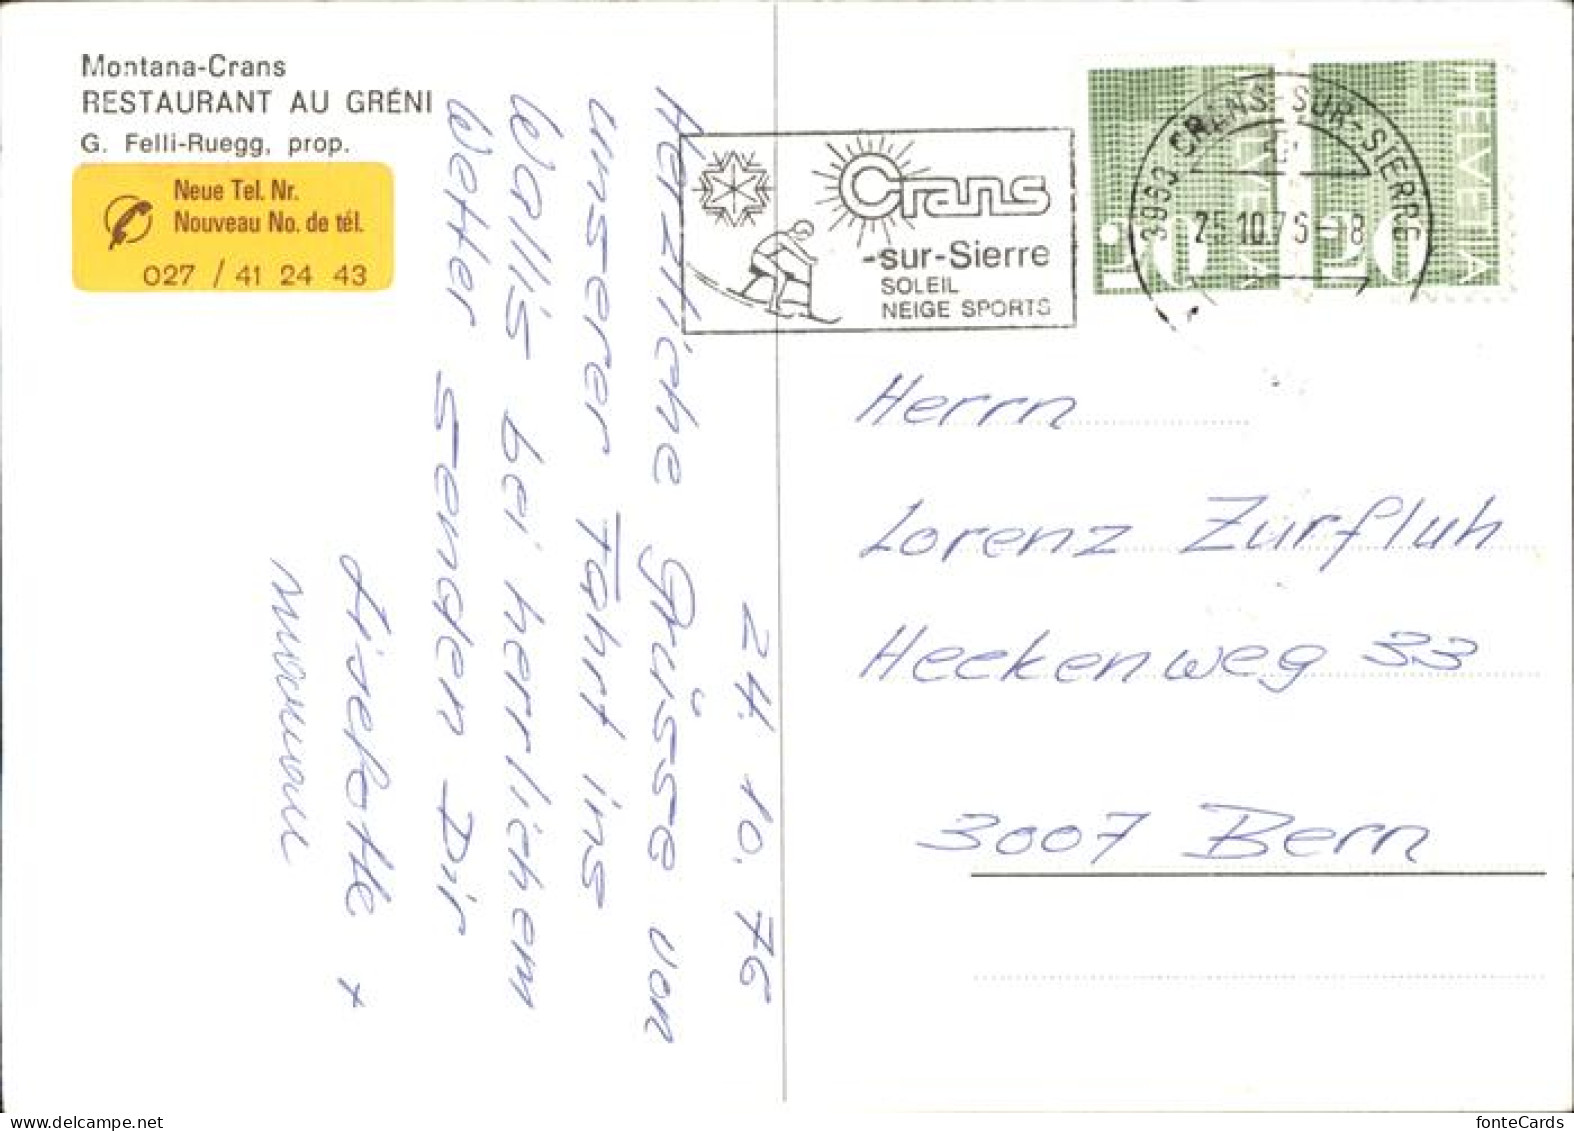 Montana-Crans
RESTAURANT AU GRÉNI
G. Felli-Ruegg, prop.
Neue Tel. Nr.
Nouveau No. de tél.
027 / 41 24 43
24. 10. 76
Herzliche Grüsse von
unserer Fahrt ins
Wallis bei herrlichem
Wetter senden Dir
Liselotte +
Crans
-sur-Sierre
SOLEIL
NEIGE SPORTS
3963 CRANS-SUR-SIERRE
25.10.76-8
HELVETIA
50
HELVETIA
50
Herrn
Lorenz Zurfluh
Heckenweg 33
3007 Bern
fonteCards
delcampe.net